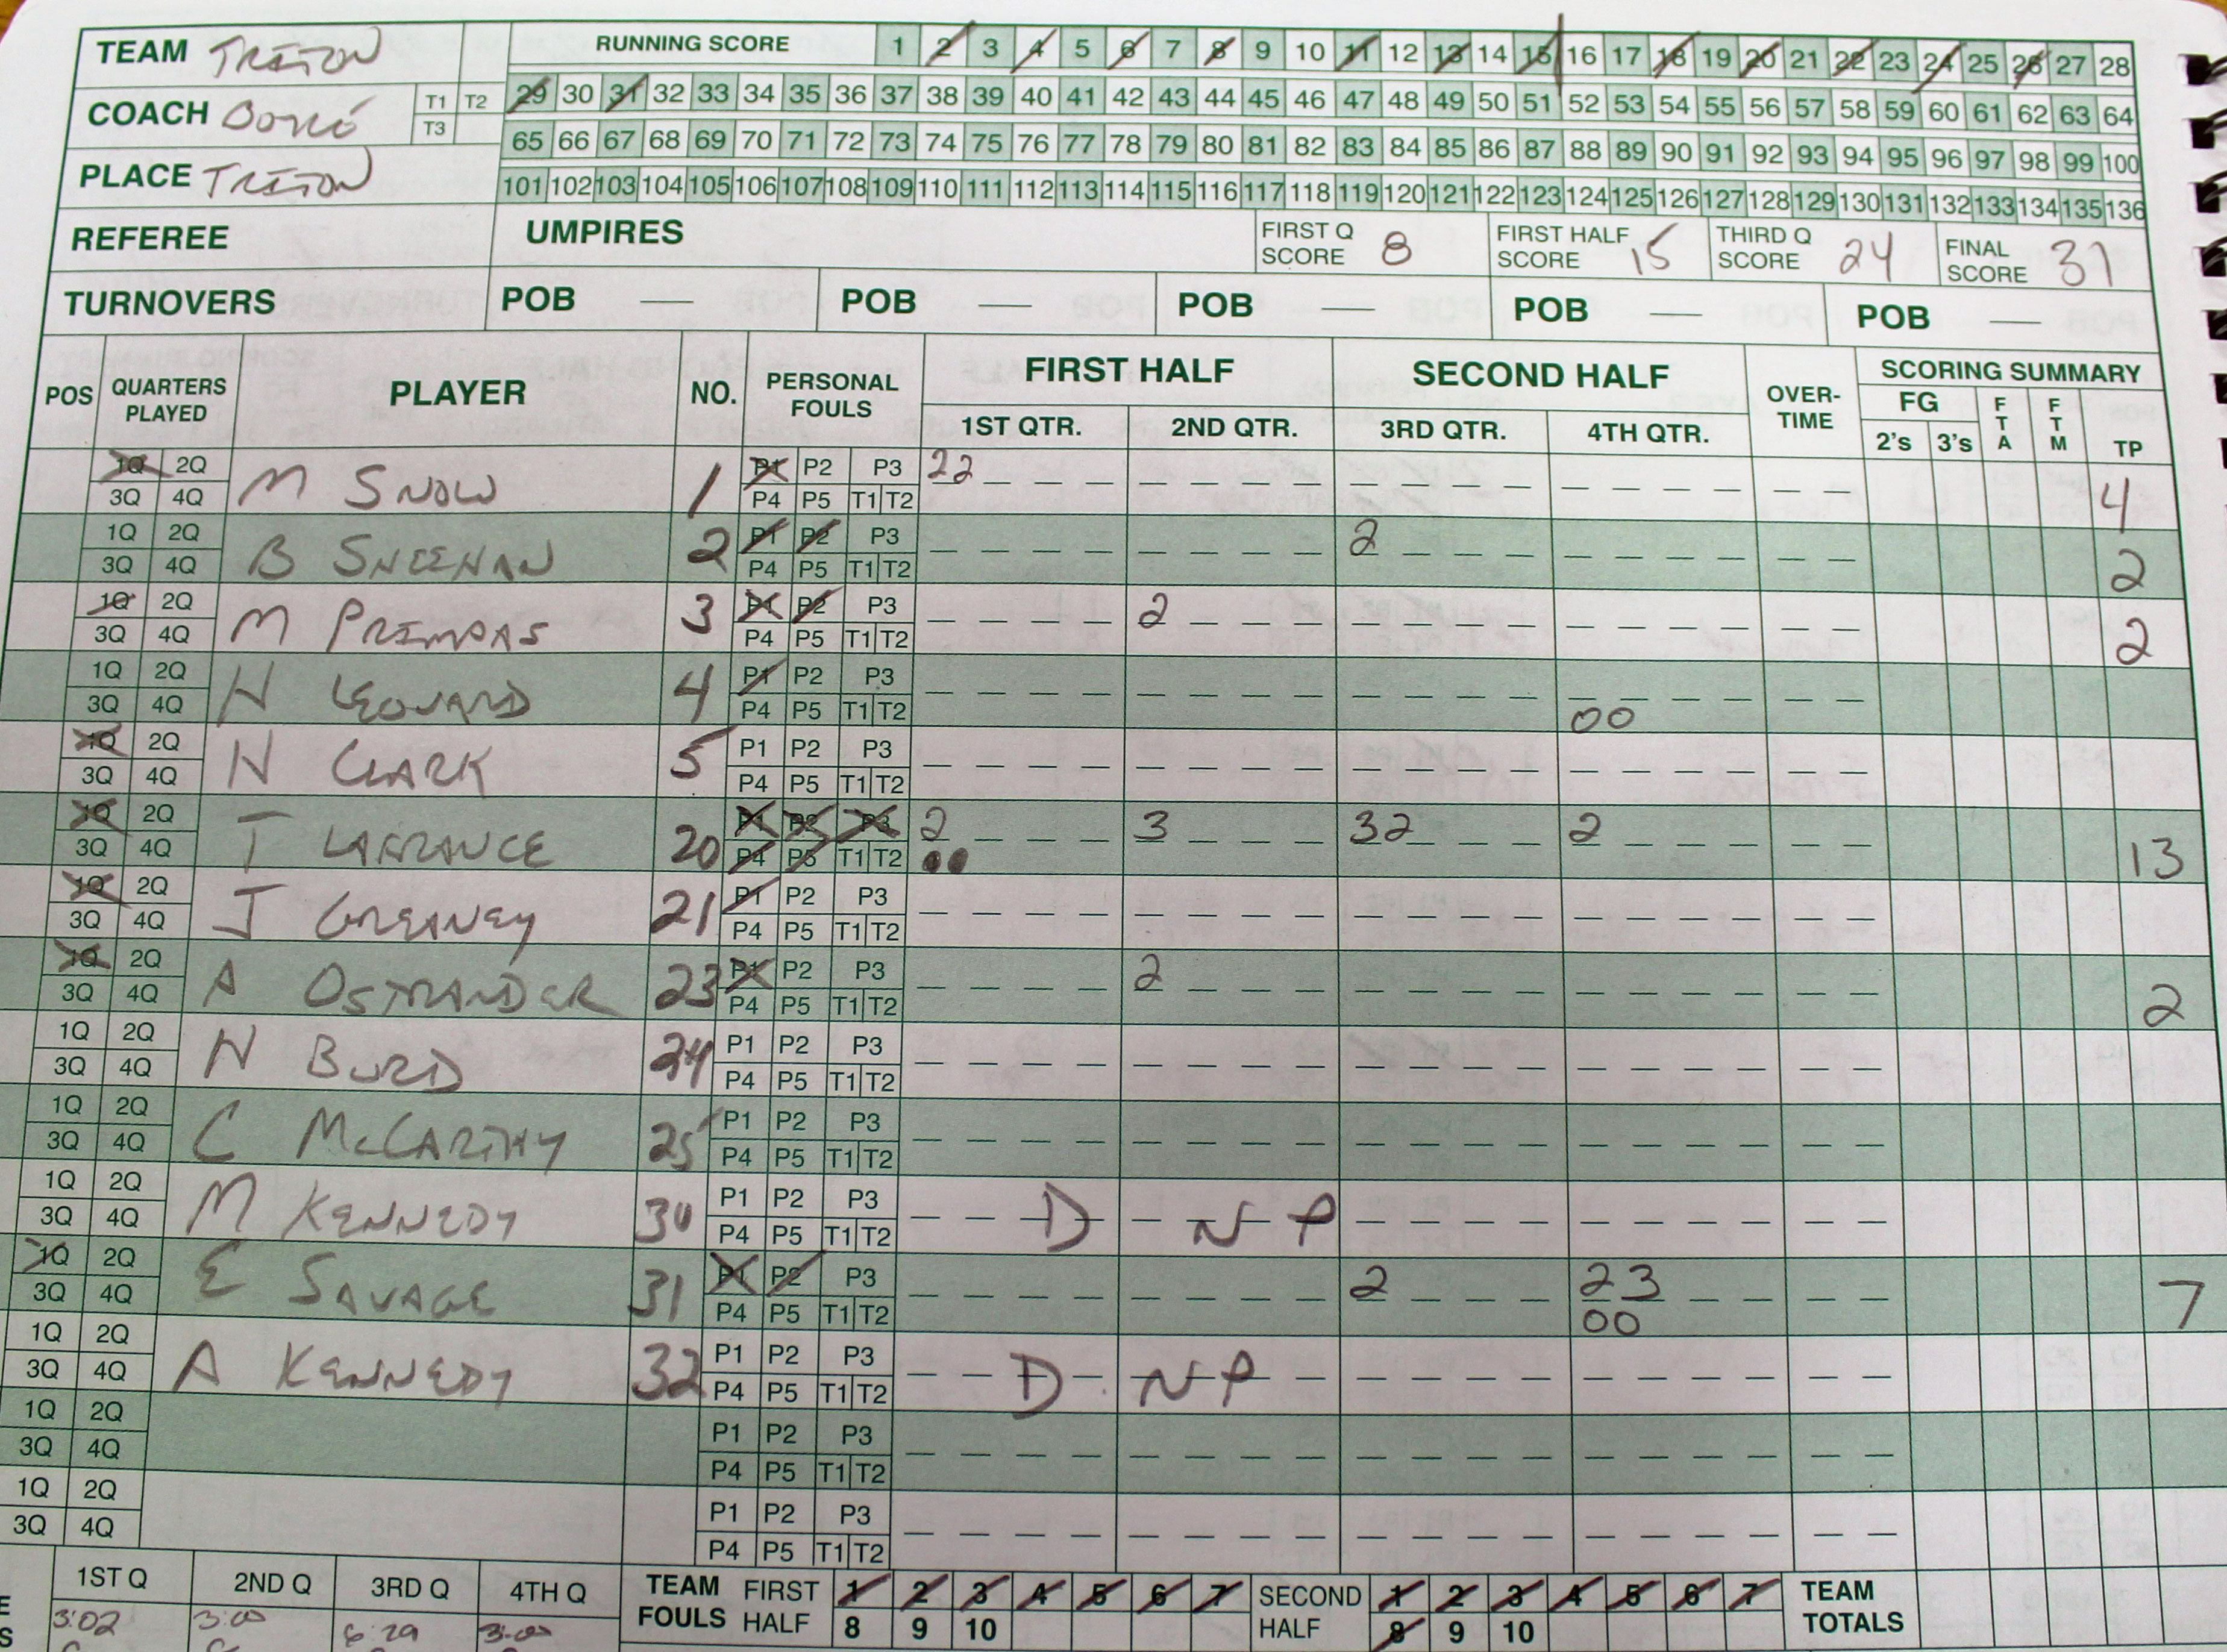 TEAM TRITON RUNNING SCORE 1 2 3 4 5 6 7 8 9 10 11 12 13 14 15 16 17 18 19 20 21 22 23 24 25 26 27 28
COACH T1 T2 29 30 31 32 33 34 35 36 37 38 39 40 41 42 43 44 45 46 47 48 49 50 51 52 53 54 55 56 57 58 59 60 61 62 63 64
T3 65 66 67 68 69 70 71 72 73 74 75 76 77 78 79 80 81 82 83 84 85 86 87 88 89 90 91 92 93 94 95 96 97 98 99 100
PLACE TRITON 101 102 103 104 105 106 107 108 109 110 111 112 113 114 115 116 117 118 119 120 121 122 123 124 125 126 127 128 129 130 131 132 133 134 135 136
REFEREE UMPIRES FIRST Q SCORE 8 FIRST HALF SCORE 15 THIRD Q SCORE 24 FINAL SCORE 31
TURNOVERS POB — POB — POB — POB — POB —
POS QUARTERS PLAYED PLAYER NO. PERSONAL FOULS FIRST HALF SECOND HALF OVER-TIME SCORING SUMMARY
1ST QTR. 2ND QTR. 3RD QTR. 4TH QTR. FG 2's 3's FTA FTM TP
1Q 2Q M SNOW 1 P1 P2 P3 22 4
3Q 4Q P4 P5 T1 T2
1Q 2Q B SHEEHAN 2 P1 P2 P3 2 2
3Q 4Q P4 P5 T1 T2
1Q 2Q M PRIMPAS 3 P1 P2 P3 2 2
3Q 4Q P4 P5 T1 T2
1Q 2Q N LEONARD 4 P1 P2 P3
3Q 4Q P4 P5 T1 T2 00
1Q 2Q N CLARK 5 P1 P2 P3
3Q 4Q P4 P5 T1 T2
1Q 2Q T LAFRANCE 20 P1 P2 P3 2 3 32 2 13
3Q 4Q P4 P5 T1 T2
1Q 2Q J GREANEY 21 P1 P2 P3
3Q 4Q P4 P5 T1 T2
1Q 2Q A OSTRANDER 23 P1 P2 P3 2 2
3Q 4Q P4 P5 T1 T2
1Q 2Q N BURD 24 P1 P2 P3
3Q 4Q P4 P5 T1 T2
1Q 2Q C McCARTHY 25 P1 P2 P3
3Q 4Q P4 P5 T1 T2
1Q 2Q M KENNEDY 30 P1 P2 P3 D N P
3Q 4Q P4 P5 T1 T2
1Q 2Q E SAVAGE 31 P1 P2 P3 2 23 7
3Q 4Q P4 P5 T1 T2 00
1Q 2Q A KENNEDY 32 P1 P2 P3 D N P
3Q 4Q P4 P5 T1 T2
1Q 2Q P1 P2 P3
3Q 4Q P4 P5 T1 T2
1Q 2Q P1 P2 P3
3Q 4Q P4 P5 T1 T2
1ST Q 2ND Q 3RD Q 4TH Q TEAM FOULS FIRST HALF 1 2 3 4 5 6 7 SECOND HALF 1 2 3 4 5 6 7 TEAM TOTALS
3:02 3:00 6:29 3:00 8 9 10 8 9 10